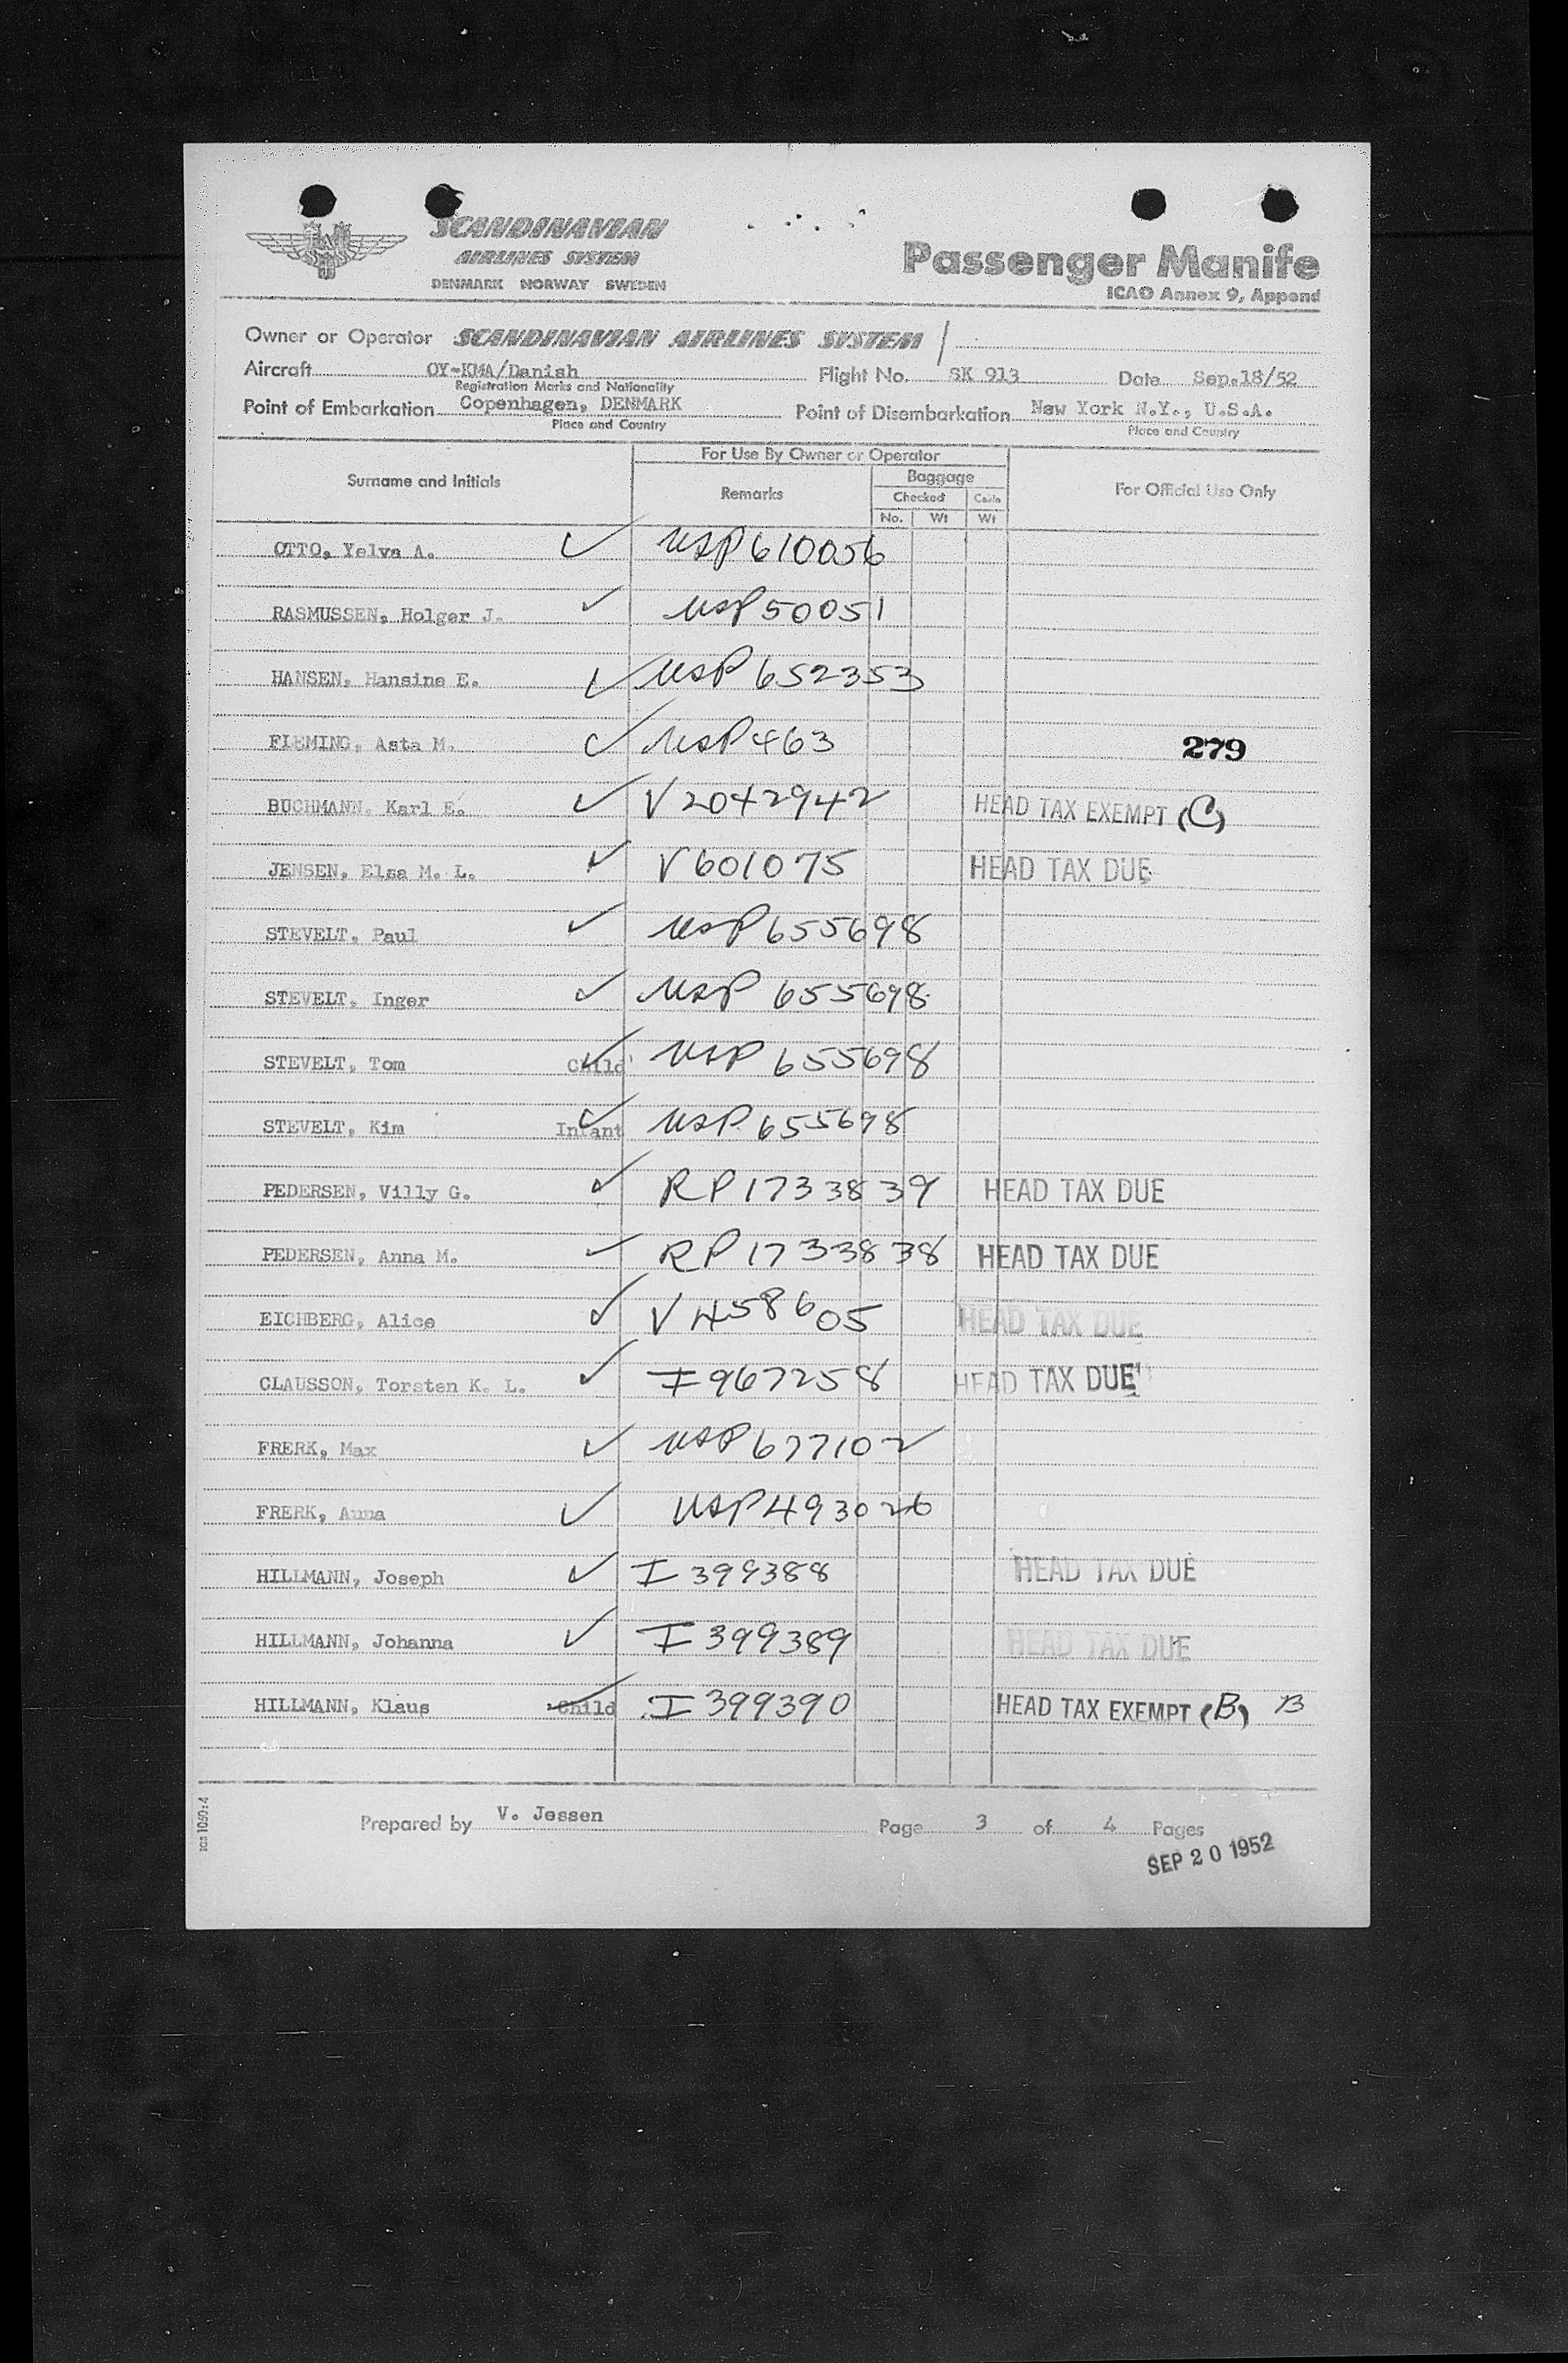 SCANDINAVIAN
AIRLINES SYSTEM
DENMARK NORWAY SWEDEN
Passenger Manife
ICAO Annex 9, Append
Owner or Operator SCANDINAVIAN AIRLINES SYSTEM
Aircraft OY-KMA/Danish Flight No. SK 913 Date Sep.18/52
Registration Marks and Nationality
Point of Embarkation Copenhagen, DENMARK Point of Disembarkation New York N.Y., U.S.A.
Place and Country Place and Country
For Use By Owner or Operator
Surname and Initials Remarks Baggage For Official Use Only
Checked
No. Wt Wt
OTTO, Yelva A. ✓ USP 610056
RASMUSSEN, Holger J. ✓ USP 50051
HANSEN, Hansine E. ✓ USP 652353
FLEMING, Asta M. ✓ USP 463 279
BUCHMANN, Karl E. ✓ V 2042942 HEAD TAX EXEMPT (C)
JENSEN, Elsa M. L. ✓ V 601075 HEAD TAX DUE
STEVELT, Paul ✓ USP 655698
STEVELT, Inger ✓ USP 655698
STEVELT, Tom Child ✓ USP 655698
STEVELT, Kim Infant ✓ USP 655698
PEDERSEN, Villy G. ✓ RP 1733839 HEAD TAX DUE
PEDERSEN, Anna M. ✓ RP 1733838 HEAD TAX DUE
EICHBERG, Alice ✓ V 458605 HEAD TAX DUE
CLAUSSON, Torsten K. L. ✓ I 967258 HEAD TAX DUE
FRERK, Max ✓ USP 677102
FRERK, Anna ✓ USP 493026
HILLMANN, Joseph ✓ I 399388 HEAD TAX DUE
HILLMANN, Johanna ✓ I 399389 HEAD TAX DUE
HILLMANN, Klaus Child I 399390 HEAD TAX EXEMPT (B) B
Prepared by V. Jessen Page 3 of 4 Pages
SEP 20 1952
sas 1060:4